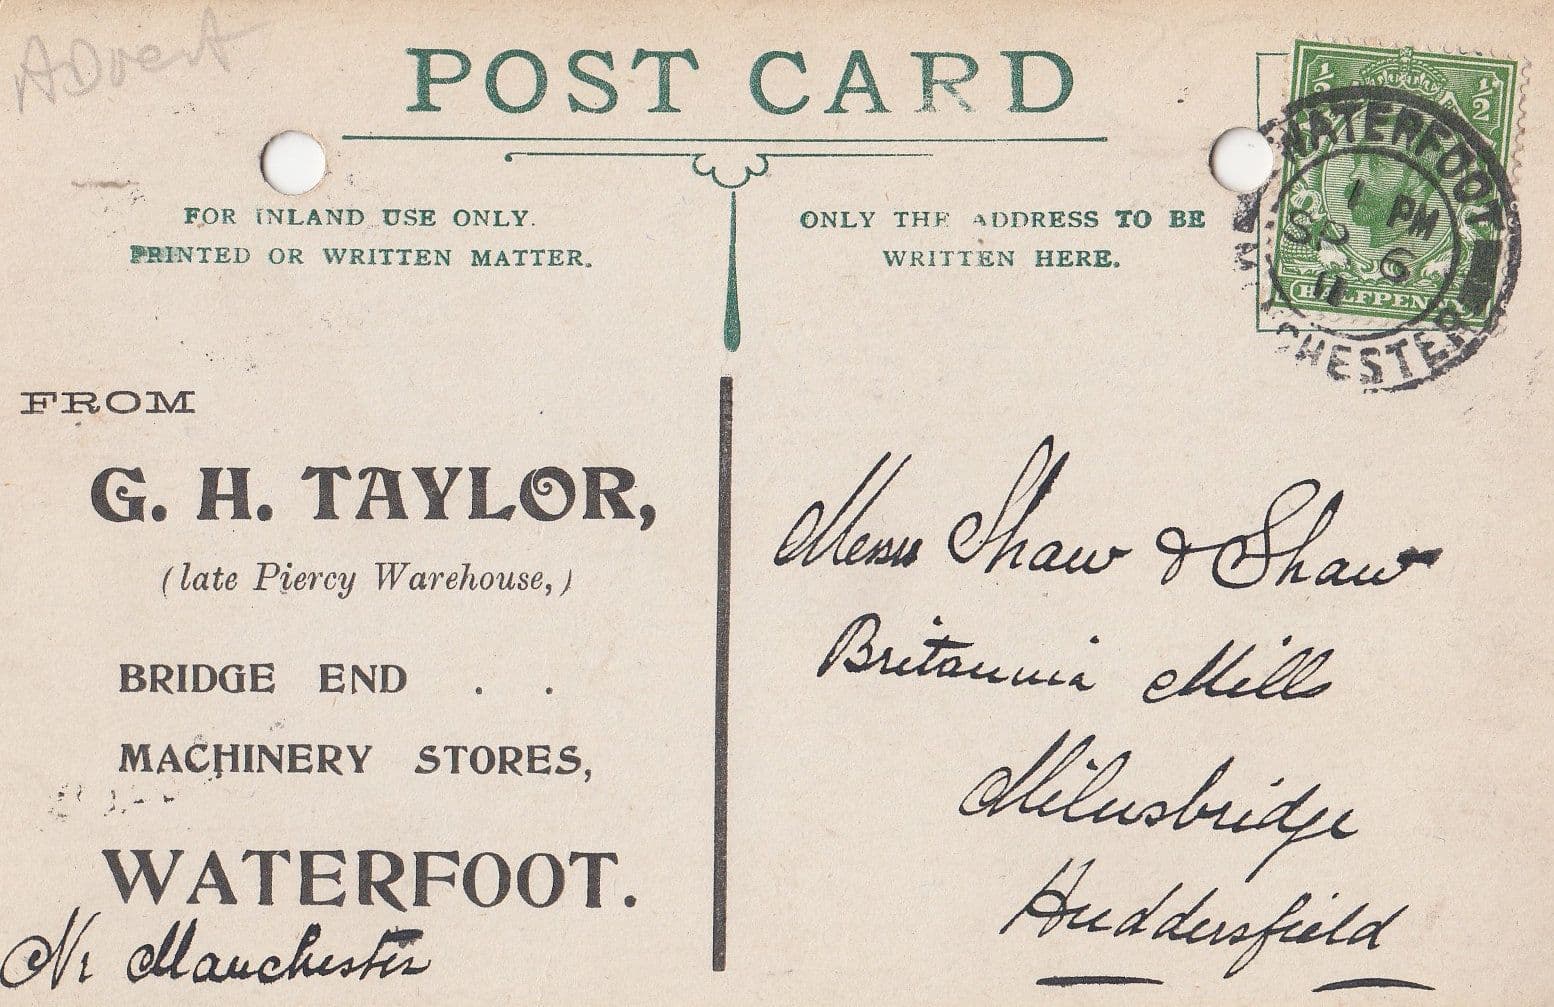 Advert
POST CARD
FOR INLAND USE ONLY.
PRINTED OR WRITTEN MATTER.
ONLY THE ADDRESS TO BE
WRITTEN HERE.
½ ½
HALFPENNY
WATERFOOT
1 PM
SP 6
11
MANCHESTER
FROM
G. H. TAYLOR,
(late Piercy Warehouse,)
BRIDGE END . .
MACHINERY STORES,
WATERFOOT.
Nr Manchester
Messrs Shaw & Shaw
Britannia Mills
Milnsbridge
Huddersfield